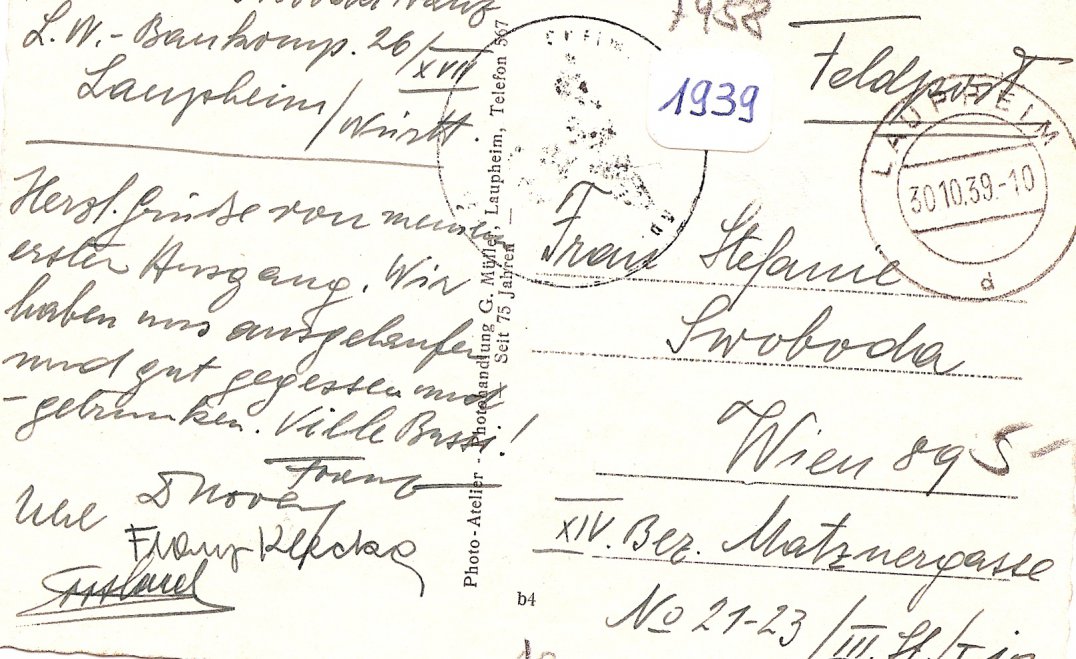 Franz
L.W.-Baukomp. 26/XVII
Laupheim/Württ.
Herzl. Grüße von meinem
ersten Ausgang. Wir
haben uns ausgelaufen
und gut gegessen und
-getrunken. Bussi!
Franz
Franz
Photo-Atelier - Photohandlung G. Müller, Laupheim, Telefon 567
Seit 75 Jahren
b4
1958
1939
Feldpost
LAUPHEIM
30.10.39.-10
d
Frau Stefanie
Swoboda
Wien 89
XIV. Bez. Matznergasse
No 21-23/III. St./T.